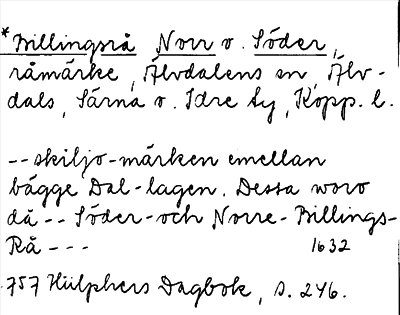 *Billingsrå Norr o. Söder,
råmärke, Älvdalens sn, Älv-
dals, Särna o. Idre ty, Kopp. l.
-- skiljo-märken emellan
bägge Dal-lagen. Dessa woro
då -- Söder- och Norre-Billings-
Rå --- 1632
757 Hülphers Dagbok, s. 246.